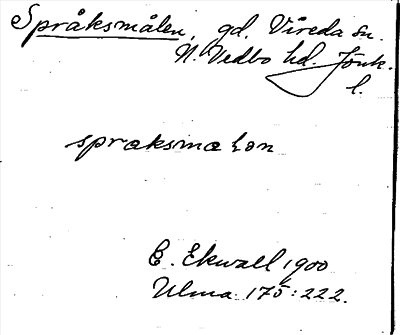 Språksmålen, gd. Vireda sn.
N. Vedbo hd. Jönk.
l.
spraksmalon
E. Ekwall 1900
Ulma 175:222.